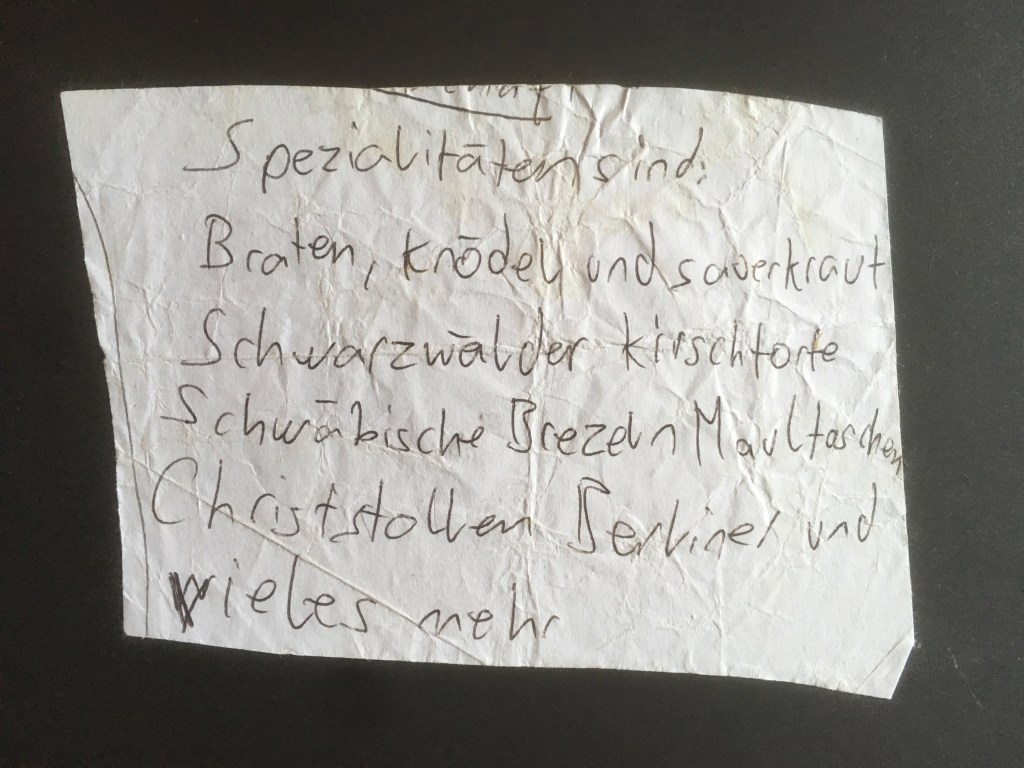 Spezialitäten sind:
Braten, Knödel und sauerkraut
Schwarzwälder Kirschtorte
Schwäbische Brezeln Maultaschen
Christstollen Berliner und
vieles mehr